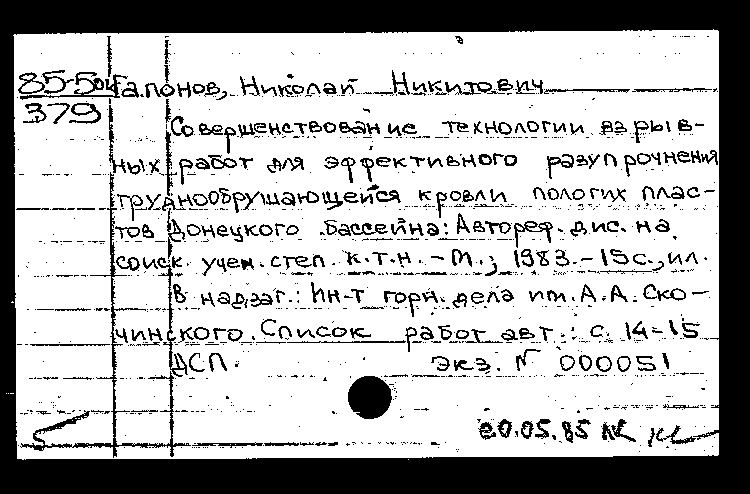 85-504 Гапонов, Николай Никитович
379
Совершенствование технологии взрыв-
ных работ для эффективного разупрочнения
труднообрушающейся кровли пологих плас-
тов Донецкого бассейна: Автореф. дис. на
соиск. учен. степ. к.т.н. - М.; 1983. - 15 с., ил.
В надзаг.: Ин-т горн. дела им. А.А. Ско-
чинского. Список работ авт.: с. 14-15
ДСП. Экз. № 000051
20.05.85